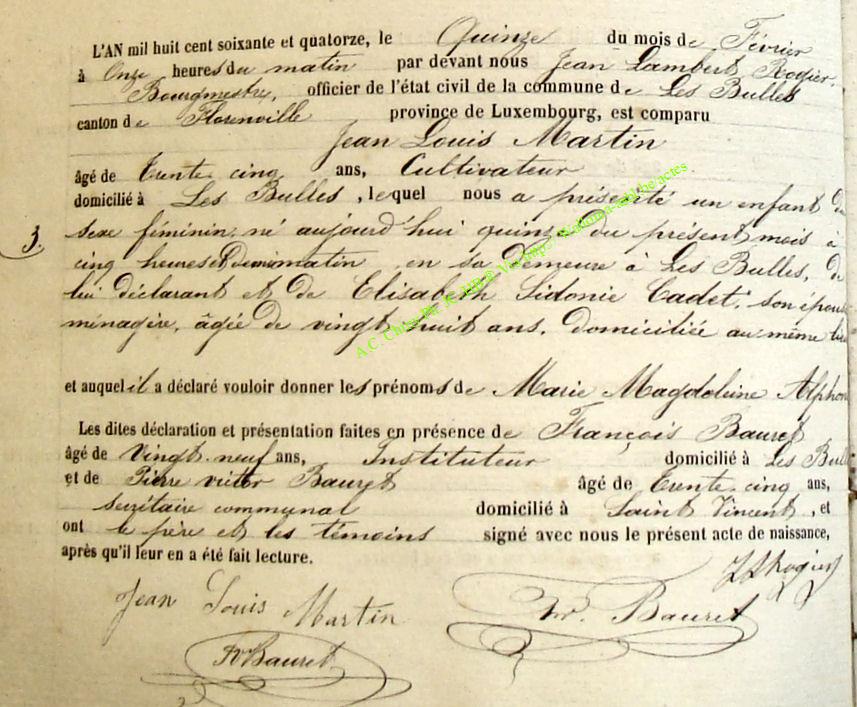 L'AN mil huit cent soixante et quatorze, le Quinze du mois de Février
à Onze heures du matin par devant nous Jean Lambert Rogier,
Bourgmestre, officier de l'état civil de la commune de Les Bulles
canton de Florenville province de Luxembourg, est comparu
Jean Louis Martin
âgé de Trente cinq ans, Cultivateur
domicilié à Les Bulles, lequel nous a présenté un enfant du
3.
sexe féminin, né aujourd'hui quinze du présent mois à
cinq heures et demi matin, en sa demeure à Les Bulles, de
lui déclarant et de Elisabeth Sidonie Cadet, son épouse
ménagère, âgée de vingt huit ans, domiciliée au même
et auquel il a déclaré vouloir donner les prénoms de Marie Magdeleine Alphon
Les dites déclaration et présentation faites en présence de François Bauret
âgé de Vingt neuf ans, Instituteur domicilié à Les Bull
et de Pierre victor Bauret âgé de Trente cinq ans,
secrétaire communal domicilié à Saint Vincent, et
ont le père et les témoins signé avec nous le présent acte de naissance,
après qu'il leur en a été fait lecture.
Rogier
Jean Louis Martin
Bauret
Bauret